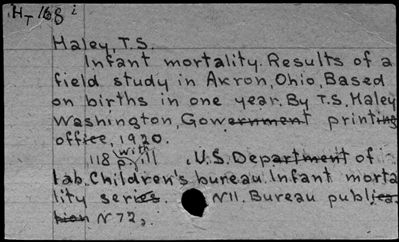 HT 168 i
Haley, T.S.
Infant mortality. Results of a
field study in Akron, Ohio, Based
on births in one year. By T.S. Haley
Washington, Government printing
office, 1920.
118 p. with ill. U.S. Department of
lab. Children's bureau. Infant morta
lity series. N11. Bureau publica
tion N 72,